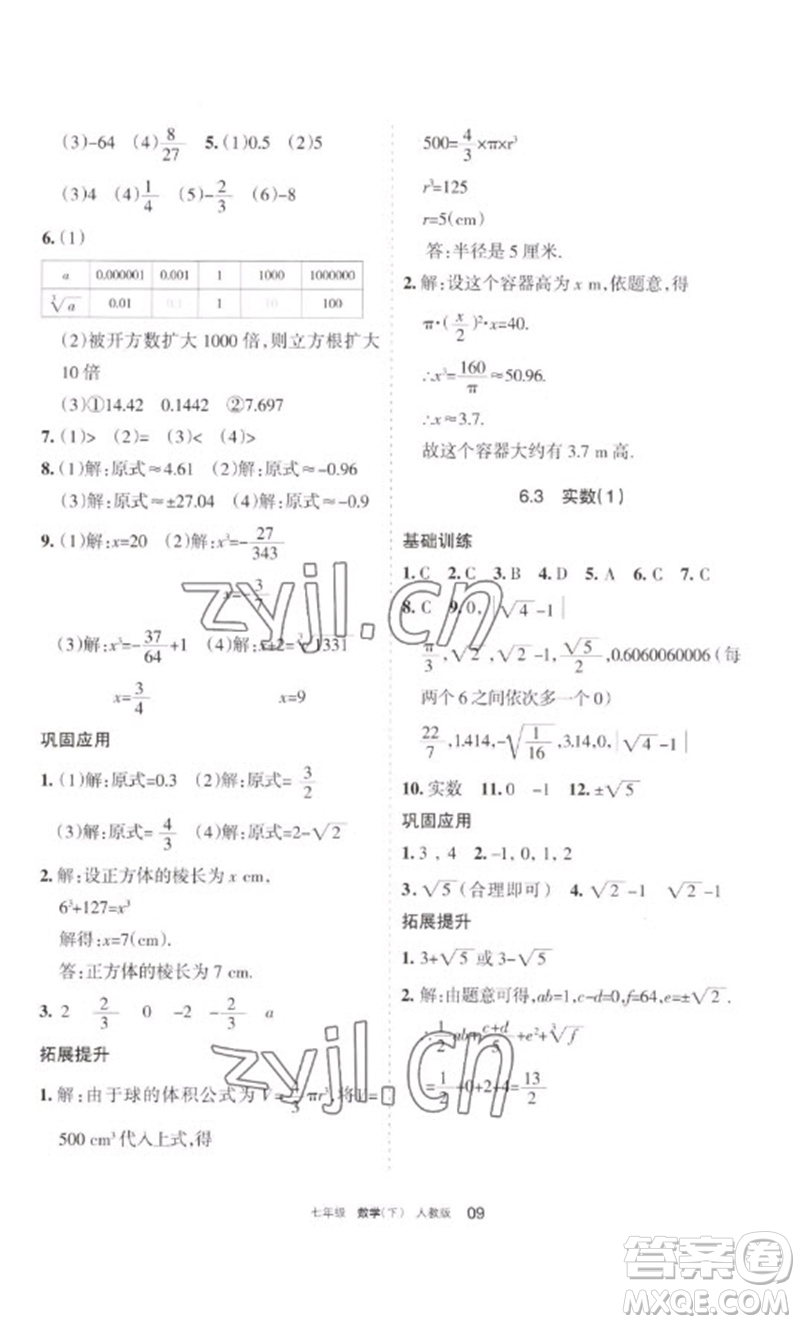 (3)-64 (4)8/27 5.(1)0.5 (2)5
(3)4 (4)1/4 (5)-2/3 (6)-8
6.(1)
a 0.000001 0.001 1 1000 1000000
∛a 0.01 0.1 1 10 100
(2)被开方数扩大 1000 倍,则立方根扩大
10 倍
(3)①14.42 0.1442 ②7.697
7.(1)> (2)= (3)< (4)>
8.(1)解:原式≈4.61 (2)解:原式≈-0.96
(3)解:原式≈±27.04 (4)解:原式≈0.9
9.(1)解:x=20 (2)解:x³=-27/343
x=-3/7
(3)解:x³=-37/64+1 (4)解:x+2=∛1331
x=3/4 x=9
巩固应用
1.(1)解:原式=0.3 (2)解:原式=3/2
(3)解:原式=4/3 (4)解:原式=2-√2
2.解:设正方体的棱长为 x cm,
6³+127=x³
解得:x=7(cm).
答:正方体的棱长为 7 cm.
3. 2 2/3 0 -2 -2/3 a
拓展提升
1.解:由于球的体积公式为 V=4/3πr³,将V=
500 cm³代入上式,得
500=4/3×π×r³
r³=125
r=5(cm)
答:半径是 5 厘米.
2.解:设这个容器高为 x m,依题意,得
π·(x/2)²·x=40.
∴x³=160/π≈50.96.
∴x≈3.7.
故这个容器大约有 3.7 m 高.
6.3 实数(1)
基础训练
1.C 2.C 3.B 4.D 5.A 6.C 7.C
8.C 9.0,|√4-1|
π/3,√2,√2-1,√5/2,0.6060060006(每
两个 6 之间依次多一个 0)
22/7,1.414,-√(1/16),3.14,0,|√4-1|
10.实数 11.0 -1 12.±√5
巩固应用
1.3,4 2.-1,0,1,2
3.√5(合理即可) 4.√2-1 √2-1
拓展提升
1.3+√5或3-√5
2.解:由题意可得,ab=1,c-d=0,f=64,e=±√2.
∵1/2 ab+(c+d)/5+e²+∛f
=1/2+0+2+4=13/2
七年级 数学(下) 人教版 09
zyjl.cn
zyjl.cn
答案圈
MXQE.COM